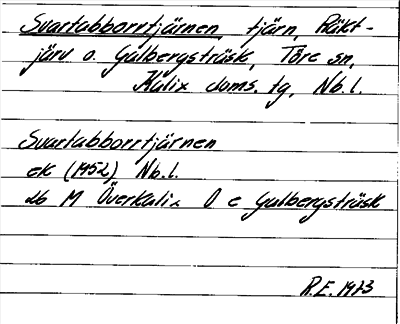 Svartabborrtjärnen, tjärn, Räkt-
järv o. Galbergsträsk, Töre sn,
Kalix doms. tg, Nb. l.
Svartabborrtjärnen
ek (1952) Nb. l.
db M Överkalix O e Galbergsträsk
R.E. 1973